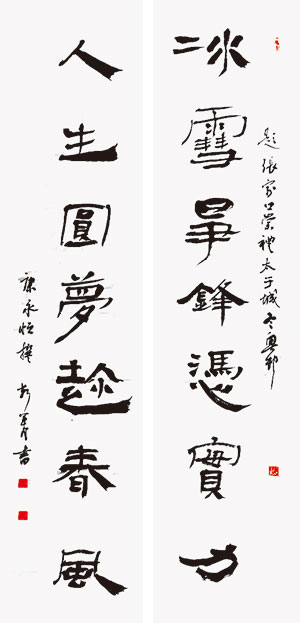 冰雪爭鋒憑實力
題張家口崇禮太子城冬奧村
人生圓夢趁春風
康永恒撰